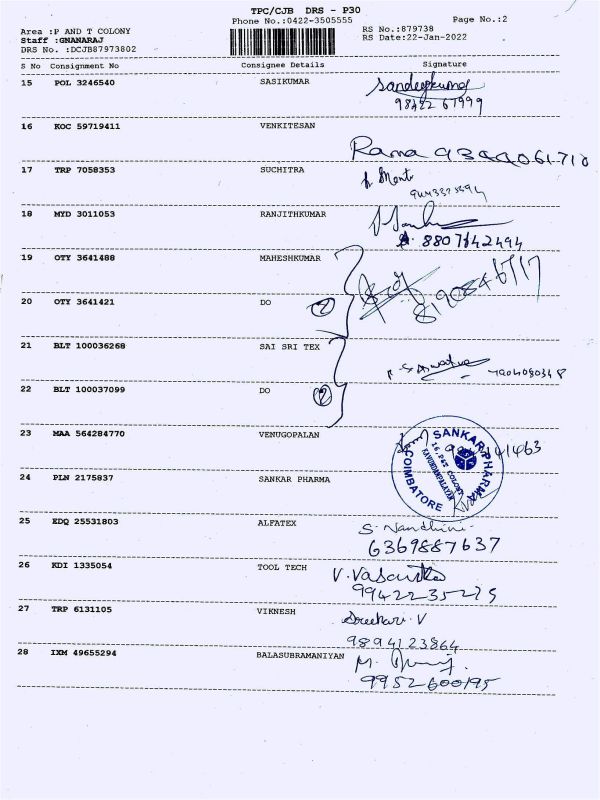 TPC/CJB DRS - P30
Phone No.:0422-3505555 Page No.:2
Area :P AND T COLONY
Staff :GNANARAJ RS No.:879738
DRS No. :DCJB87973802 RS Date:22-Jan-2022
S No Consignment No Consignee Details Signature
15 POL 3246540 SASIKUMAR Sandeepkumar
98422 67999
16 KOC 59719411 VENKITESAN
Rama
17 TRP 7058353 SUCHITRA
18 MYD 3011053 RANJITHKUMAR
8807142494
19 OTY 3641488 MAHESHKUMAR
8190846717
20 OTY 3641421 DO 2
21 BLT 100036268 SAI SRI TEX
22 BLT 100037099 DO 2
23 MAA 564284770 VENUGOPALAN
SANKAR PHARMA
16, P&T COLONY
KAVUNDAMPALAYAM
COIMBATORE
24 PLN 2175837 SANKAR PHARMA
25 EDQ 25531803 ALFATEX S. Nandhini
6369887637
26 KDI 1335054 TOOL TECH V. Vasantha
9942235275
27 TRP 6131105 VIKNESH Sreehari V
9894123864
28 IXM 49655294 BALASUBRAMANIYAN
9952600195